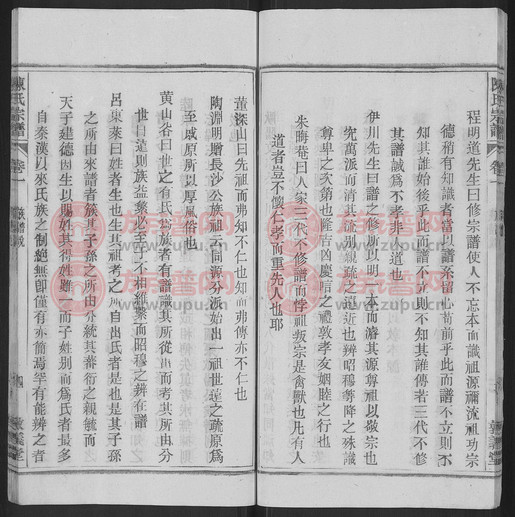 程明道先生曰修宗譜使人不忘本而識祖源禰流祖功宗
德稍有知識者當以譜系留心苟前乎此而譜不立則不
知其誰始後乎此而譜不修則不知其誰傳者三代不修
其譜誠為不孝非人道也
伊川先生曰譜之修所以明一本而濬其源尊祖以敬宗也
究萬派而清其流親親之近也辨昭穆尊降之殊識
尊卑之次第也隆吉凶慶唁之禮敦孝友姻睦之行也
朱晦菴曰人家三代不修譜而悖祖叛宗是禽獸也凡有人
道者豈不懷仁孝而重先人也耶
陳氏宗譜
卷一
董深山曰先祖而弗知不仁也知而弗傳亦不仁也
陶淵明贈長沙公族祖云同源分派始出一祖世遠之疏原為
至戚原所以厚風俗也
黃山谷曰世之有氏為族者有譜識其所從出而考其所由分
世日遠則族益繁必至于不相維繫而昭穆之辨在譜
呂東萊曰姓者生也生其祖考之所自出氏者是也是其子孫
之所由來譜者族其子孫之所由分統其蕃衍之親疏而
天子建德因生以賜姓其得姓雖一而子姓別而為氏者最多
自秦漢以來氏族之制絕無卽僅有亦簡焉罕有能辨之者
陳氏宗譜
卷一
族譜說
四
敦義堂